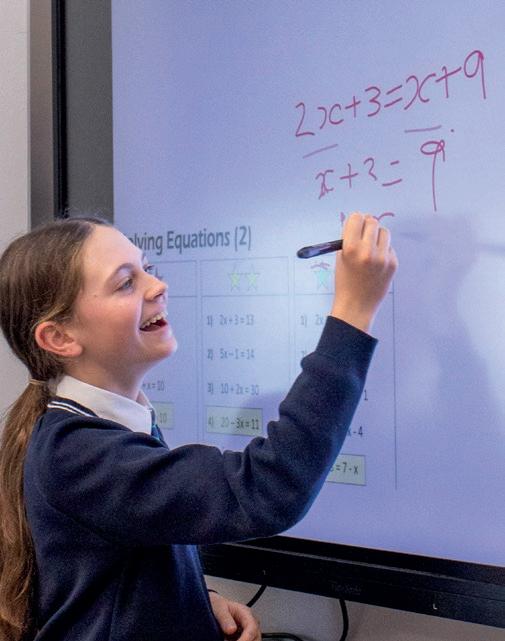 2x+3=x+9
x+3=9
lving Equations (2)
1) 2x + 3 = 13
2) 5x – 1 = 14
3) 10 + 2x = 30
4) 20 – 3x = 11
+ x = 10
10
1) 2x
1
x - 4
= 7 - x